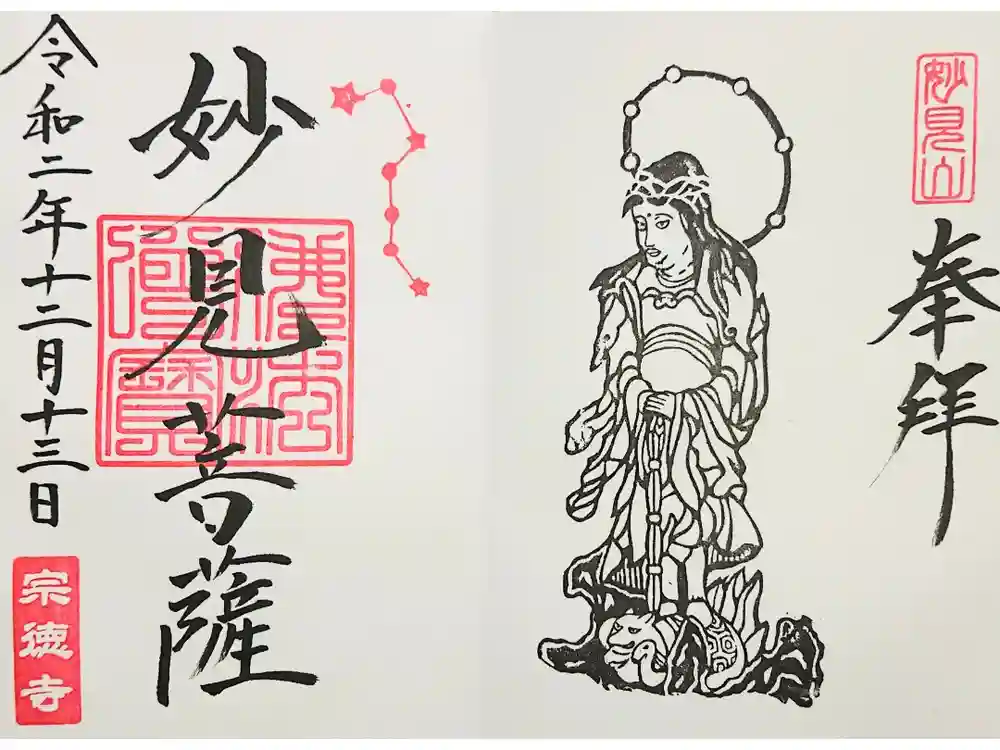 妙見山
奉拝
妙見菩薩
佛法
僧寶
令和二年十二月十三日
宗徳寺